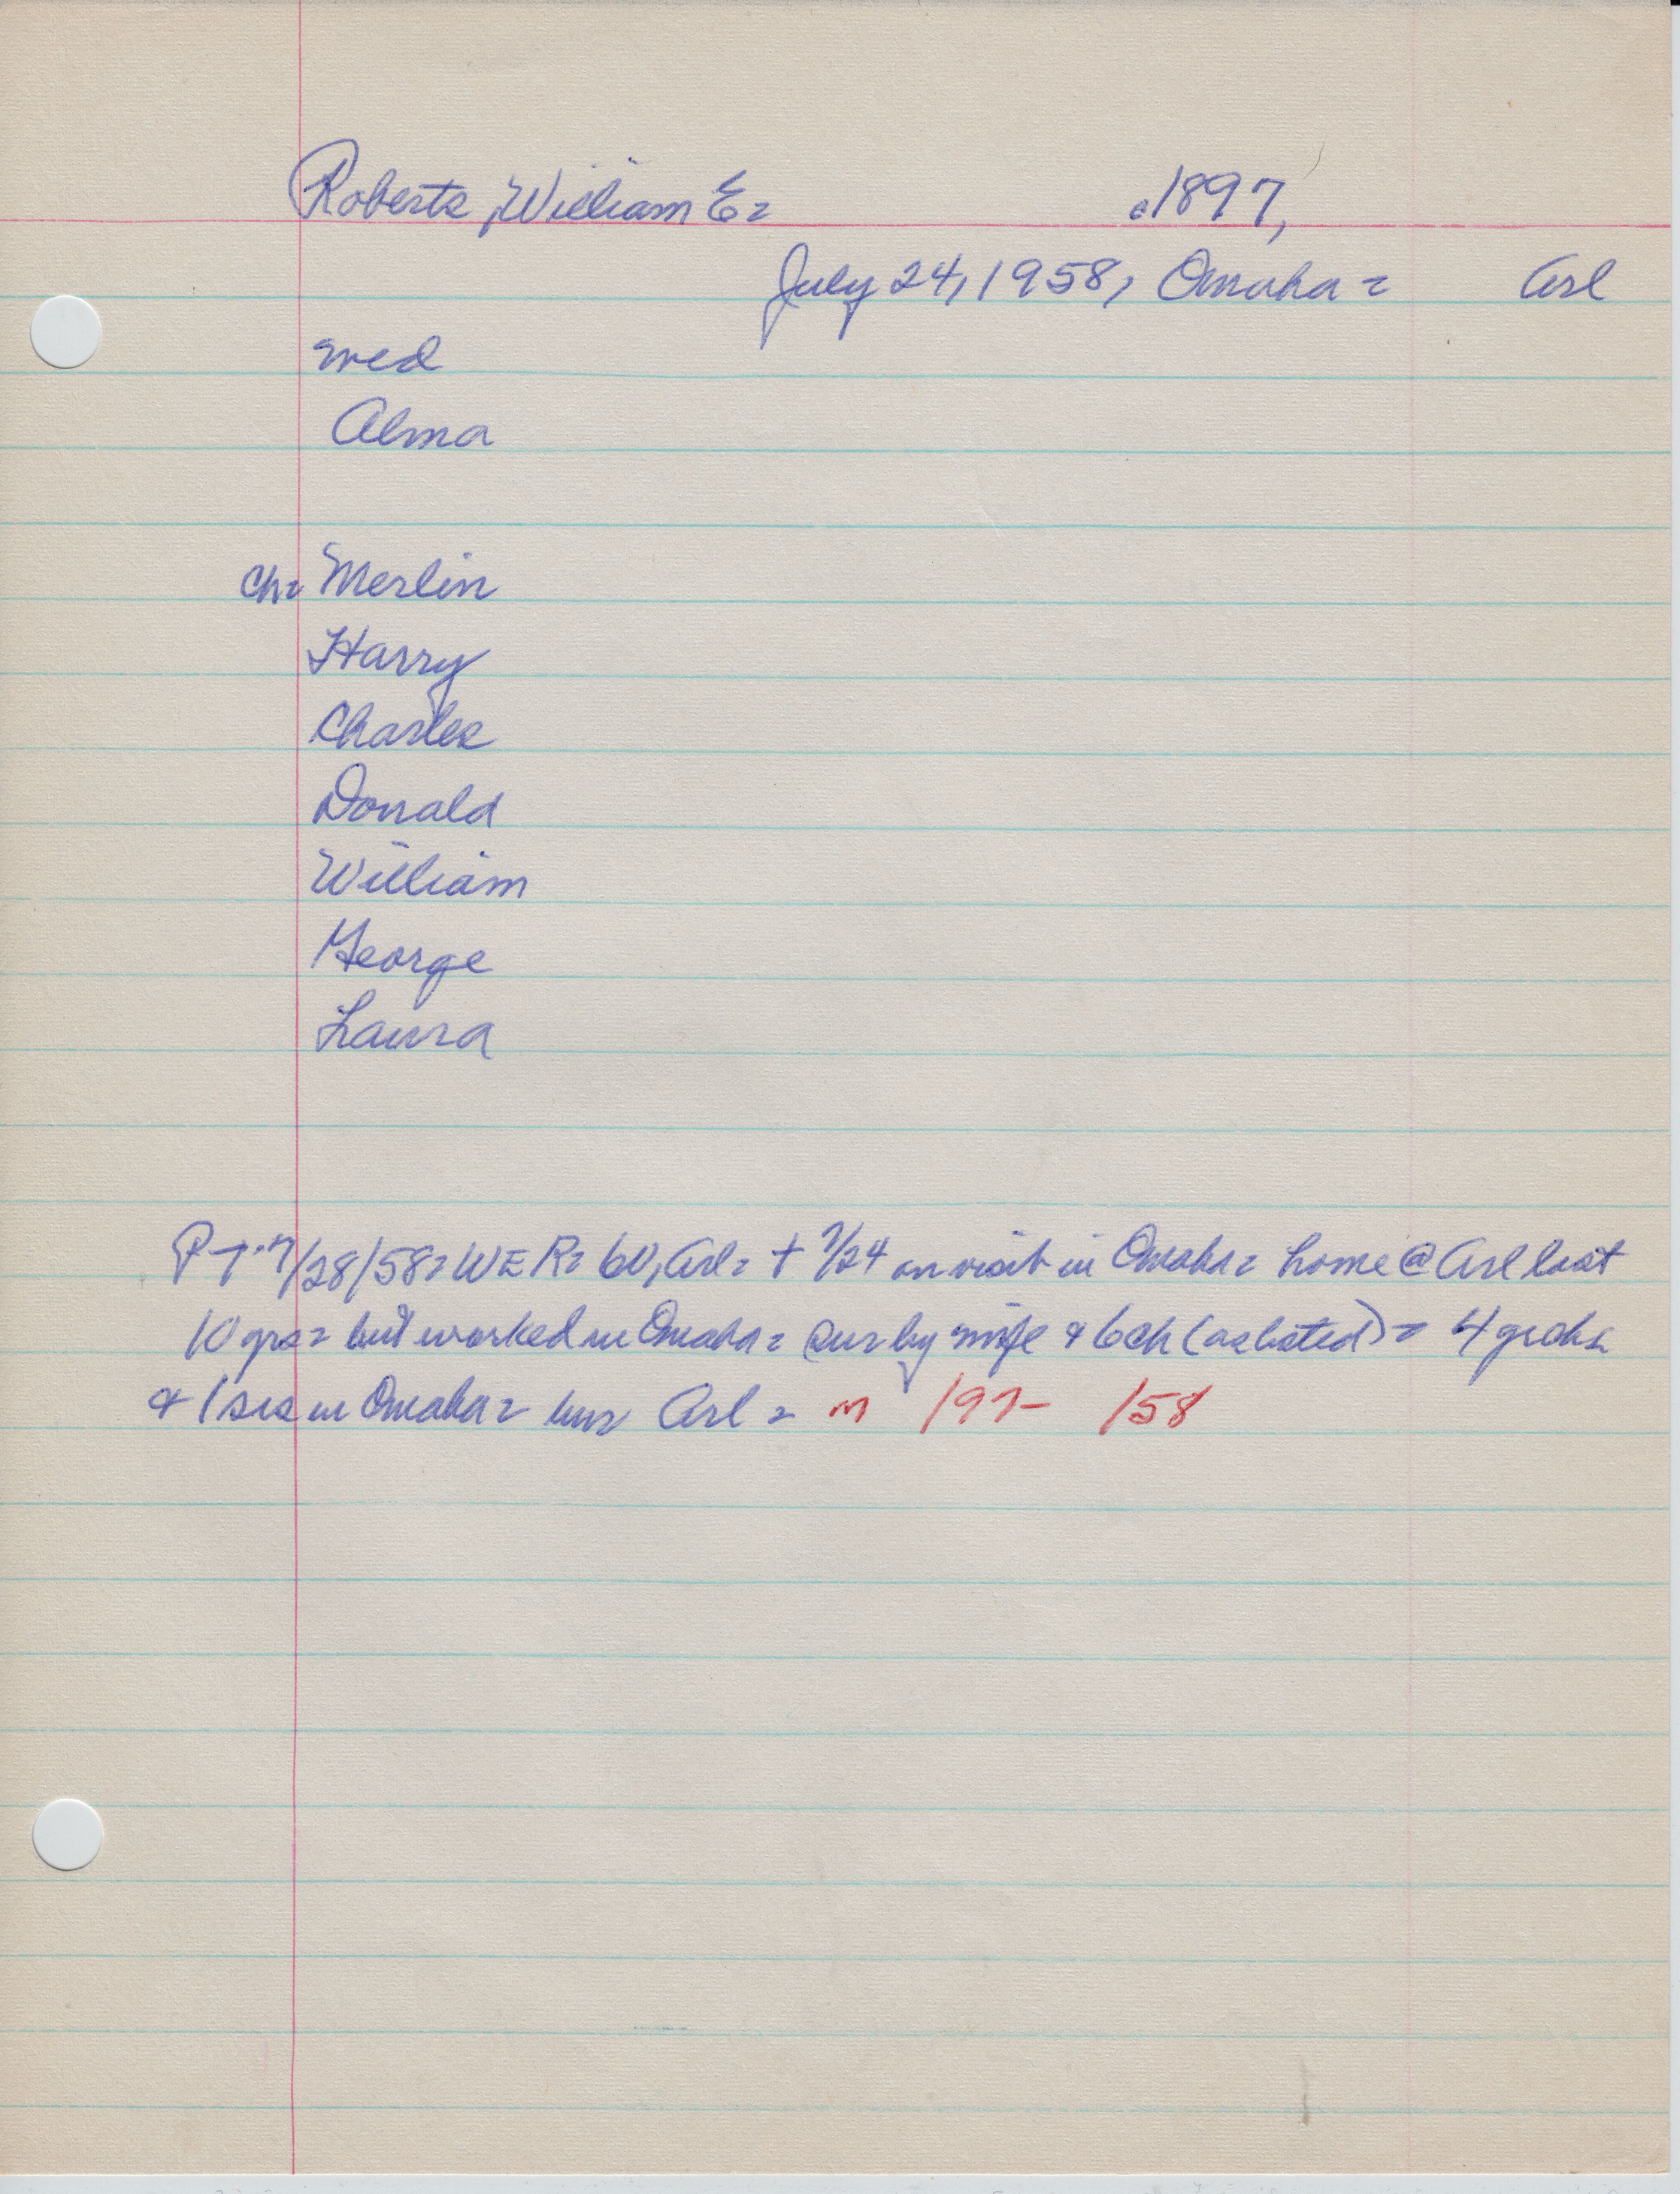 Roberts, William E = c1897,
July 24, 1958, Omaha = Arl
med
Alma
Ch= Merlin
Harry
Charles
Donald
William
George
Laura
P-T 7/28/58= WER= 60, Arl= + 7/24 on visit in Omaha= home @ Arl last
10 yrs= but worked in Omaha= sur by wife & 6 ch (as listed) = 4 grchn
& 1 sis in Omaha= bur Arl = m /97- /58